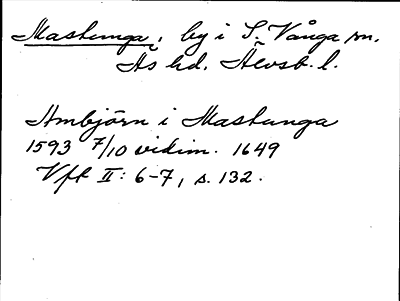 Mastunga, by i S. Vånga sn.
Ås hd. Älvsb. l.
Ambjörn i Mastunga
1593 7/10 vidim. 1649
Vft II: 6-7, s. 132.